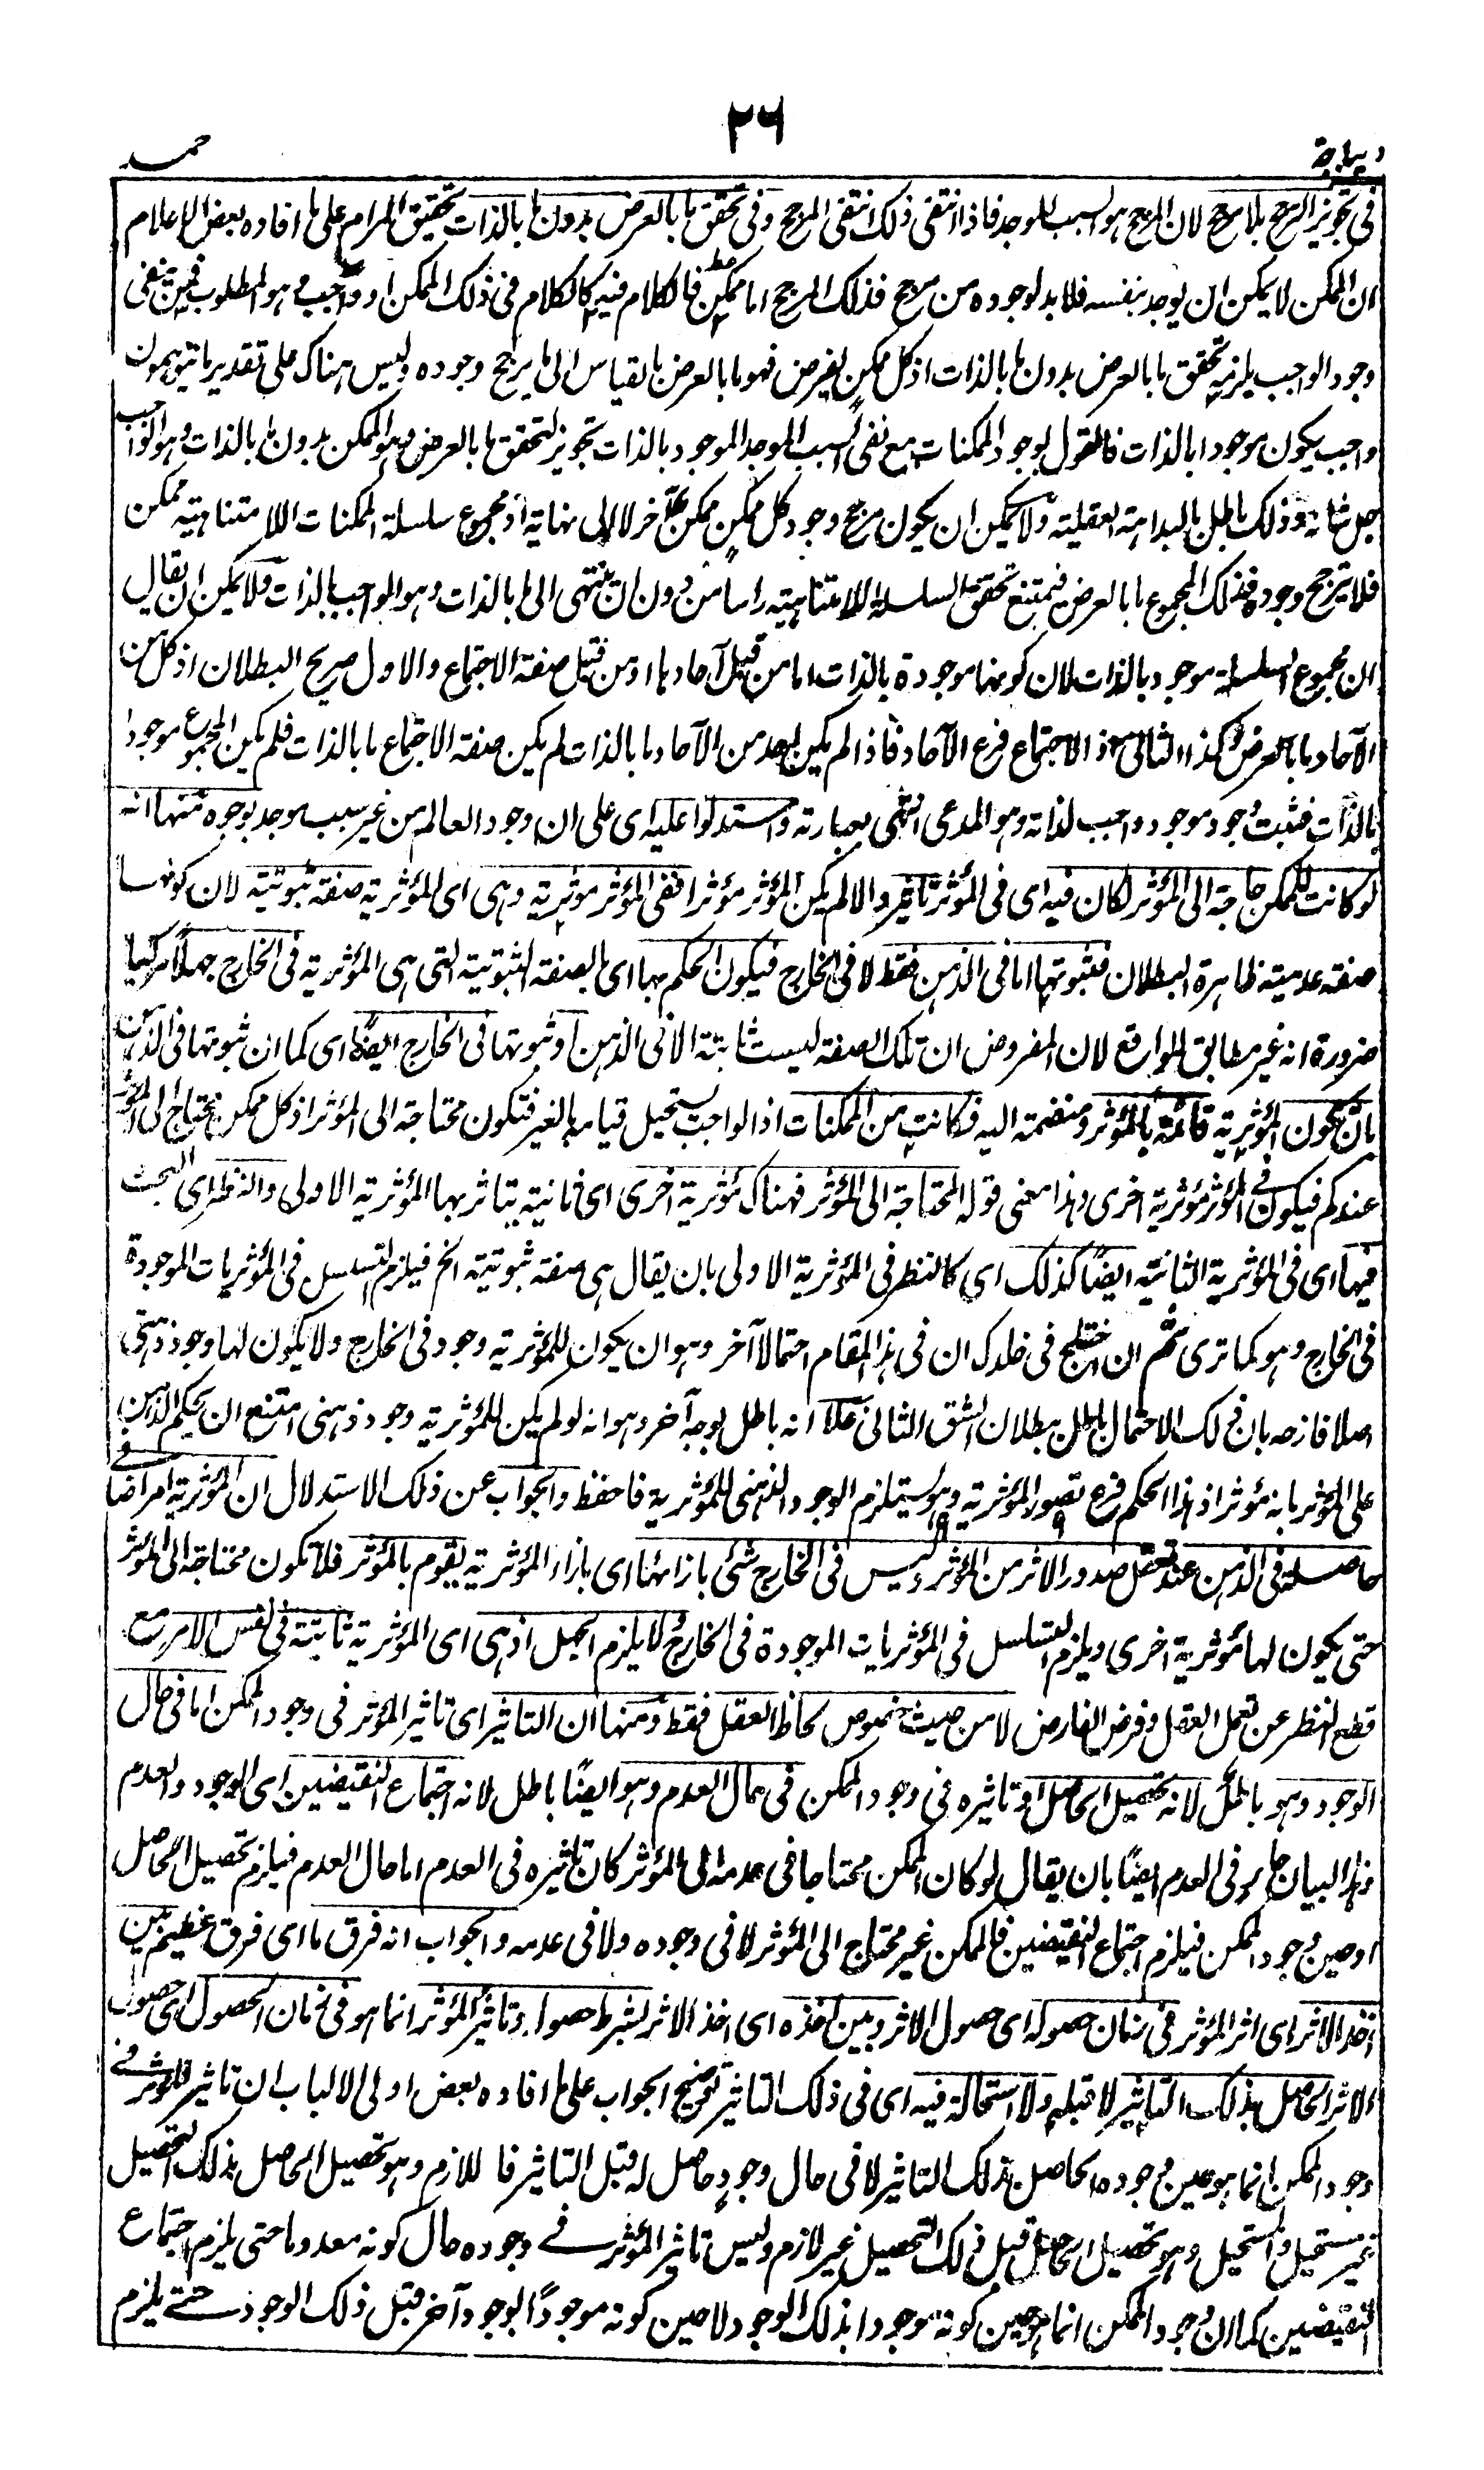 ٢٦
ديباجة
حمد
فى تجويز الترجح بلا مرجح لان المرجح هو السبب الموجد فاذا انتفى ذلك انتفى المرجح وفى تحقق ما بالعرض بدون ما بالذات تحقيق المرام على ما افاده بعض الاعلام
ان الممكن لا يمكن ان يوجد بنفسه فلا بد لوجوده من مرجح فذلك المرجح اما ممكن فالكلام فيه كالكلام فى ذلك الممكن او واجب فهو المطلوب فمن ينفى
وجود الواجب يلزمه تحقق ما بالعرض بدون ما بالذات اذ كل ممكن يفرض فهو ما بالعرض بالقياس الى ما يرجح وجوده وليس هناك على تقدير ما يتوهمون
واجب يكون موجودا بالذات فالقول بوجود الممكنات مع نفى السبب الموجد الموجود بالذات تجويز لتحقق ما بالعرض وهو الممكن بدون ما بالذات وهو الواجب
جل شانه وذلك باطل بالبداهة العقلية ولا يمكن ان يكون مرجح وجود كل ممكن ممكن آخر لا الى نهاية اذ مجموع سلسلة الممكنات اللامتناهية ممكن
فلا يترجح وجوده فذلك المجموع ما بالعرض فيمتنع تحقق السلسلة اللامتناهية راسا من دون ان ينتهى الى ما بالذات وهو الواجب بالذات ولا يمكن ان يقال
ان مجموع السلسلة موجود بالذات لان كونها موجودة بالذات اما من قبل آحادها او من قبل صفة الاجتماع والاول صريح البطلان اذ كل من
الآحاد ما بالعرض وكذا الثانى اذ الاجتماع فرع الآحاد فاذا لم يكن احد من الآحاد ما بالذات لم يكن صفة الاجتماع ما بالذات فلم يكن المجموع موجودا
بالذات فثبت وجود موجود واجب لذاته وهو المدعى انتهى بعبارته واستدلوا عليه اى على ان وجود العالم من غير سبب موجد بوجوه منها انه
لو كانت للممكن حاجة الى المؤثر لكان فيه اى فى المؤثر تاثير والا لم يكن المؤثر مؤثرا ففى المؤثر مؤثرية وهى اى المؤثرية صفة ثبوتية لان كونها
صفة عدمية ظاهرة البطلان فثبوتها اما فى الذهن فقط لا فى الخارج فيكون الحكم بها اى بالصفة الثبوتية التى هى المؤثرية فى الخارج جهلا مركبا
ضرورة انه غير مطابق للواقع لان المفروض ان تلك الصفة ليست ثابتة الا فى الذهن او ثبوتها فى الخارج ايضا اى كما ان ثبوتها فى الذهن
بان تكون المؤثرية قائمة بالمؤثر ومنضمة اليه فكانت من الممكنات اذ الواجب يستحيل قيامه بالغير فتكون محتاجة الى المؤثر اذ كل ممكن محتاج الى المؤثر
عندكم فيكون فى المؤثر مؤثرية اخرى وهذا معنى قوله المحتاجة الى المؤثر فهناك مؤثرية اخرى اى ثانية يتاثر بها المؤثرية الاولى والنظر اى البحث
فيها اى فى المؤثرية الثانية ايضا كذلك اى كالنظر فى المؤثرية الاولى بان يقال هى صفة ثبوتية الخ فيلزم التسلسل فى المؤثريات الموجودة
فى الخارج وهو كما ترى ثم ان اختلج فى خلدك ان فى هذا المقام احتمالا آخر وهو ان يكون للمؤثرية وجود فى الخارج ولا يكون لها وجود ذهنى
اصلا فازحه بان ذلك الاحتمال باطل ببطلان الشق الثانى علا انه باطل بوجه آخر وهو انه لو لم يكن للمؤثرية وجود ذهنى امتنع ان يحكم الذهن
على المؤثر بانه مؤثر اذ هذا الحكم فرع تصور المؤثرية وهو يستلزم الوجود الذهنى للمؤثرية فاحفظ والجواب عن ذلك الاستدلال ان المؤثرية امر اضافى
حاصلة فى الذهن عند تعقل صدور الاثر من المؤثر وليس فى الخارج شئ بازائها اى بازاء المؤثرية يقوم بالمؤثر فلا تكون محتاجة الى المؤثر
حتى يكون لها مؤثرية اخرى ويلزم التسلسل فى المؤثريات الموجودة فى الخارج ولا يلزم الجهل اذ هى اى المؤثرية ثابتة فى نفس الامر مع
قطع النظر عن تعمل العقل وفرض الفارض لا من حيث خصوص لحاظ العقل فقط ومنها ان التاثير اى تاثير المؤثر فى وجود الممكن اما فى حال
الوجود وهو باطل لانه تحصيل الحاصل او تاثيره فى وجود الممكن فى حال العدم وهو ايضا باطل لانه اجتماع النقيضين اى الوجود والعدم
وهذا البيان جار فى العدم ايضا بان يقال لو كان الممكن محتاجا فى عدمه الى المؤثر كان تاثيره فى العدم اما حال العدم فيلزم تحصيل الحاصل
او حين وجود الممكن فيلزم اجتماع النقيضين فالممكن غير محتاج الى المؤثر لا فى وجوده ولا فى عدمه والجواب انه فرق ما اى فرق عظيم بين
اخذ الاثر اى اثر المؤثر فى زمان حصوله اى حصول الاثر وبين اخذه اى اخذ الاثر بشرط حصوله وتاثير المؤثر انما هو فى زمان الحصول اى حصول
الاثر الحاصل بذلك التاثير لا قبله ولا استحالة فيه اى فى ذلك التاثير توضيح الجواب على ما افاده بعض اولى الالباب ان تاثير المؤثر فى
وجود الممكن انما هو حين وجوده الحاصل بذلك التاثير لا فى حال وجود حاصل له قبل التاثير فاللازم وهو تحصيل الحاصل بذلك التحصيل
غير مستحيل والمستحيل وهو تحصيل الحاصل قبل ذلك التحصيل غير لازم وليس تاثير المؤثر فى وجوده حال كونه معدوما حتى يلزم اجتماع
النقيضين كما ان وجود الممكن انما هو حين كونه موجودا بذلك الوجود لا حين كونه موجودا بوجود آخر قبل ذلك الوجود حتى يلزم